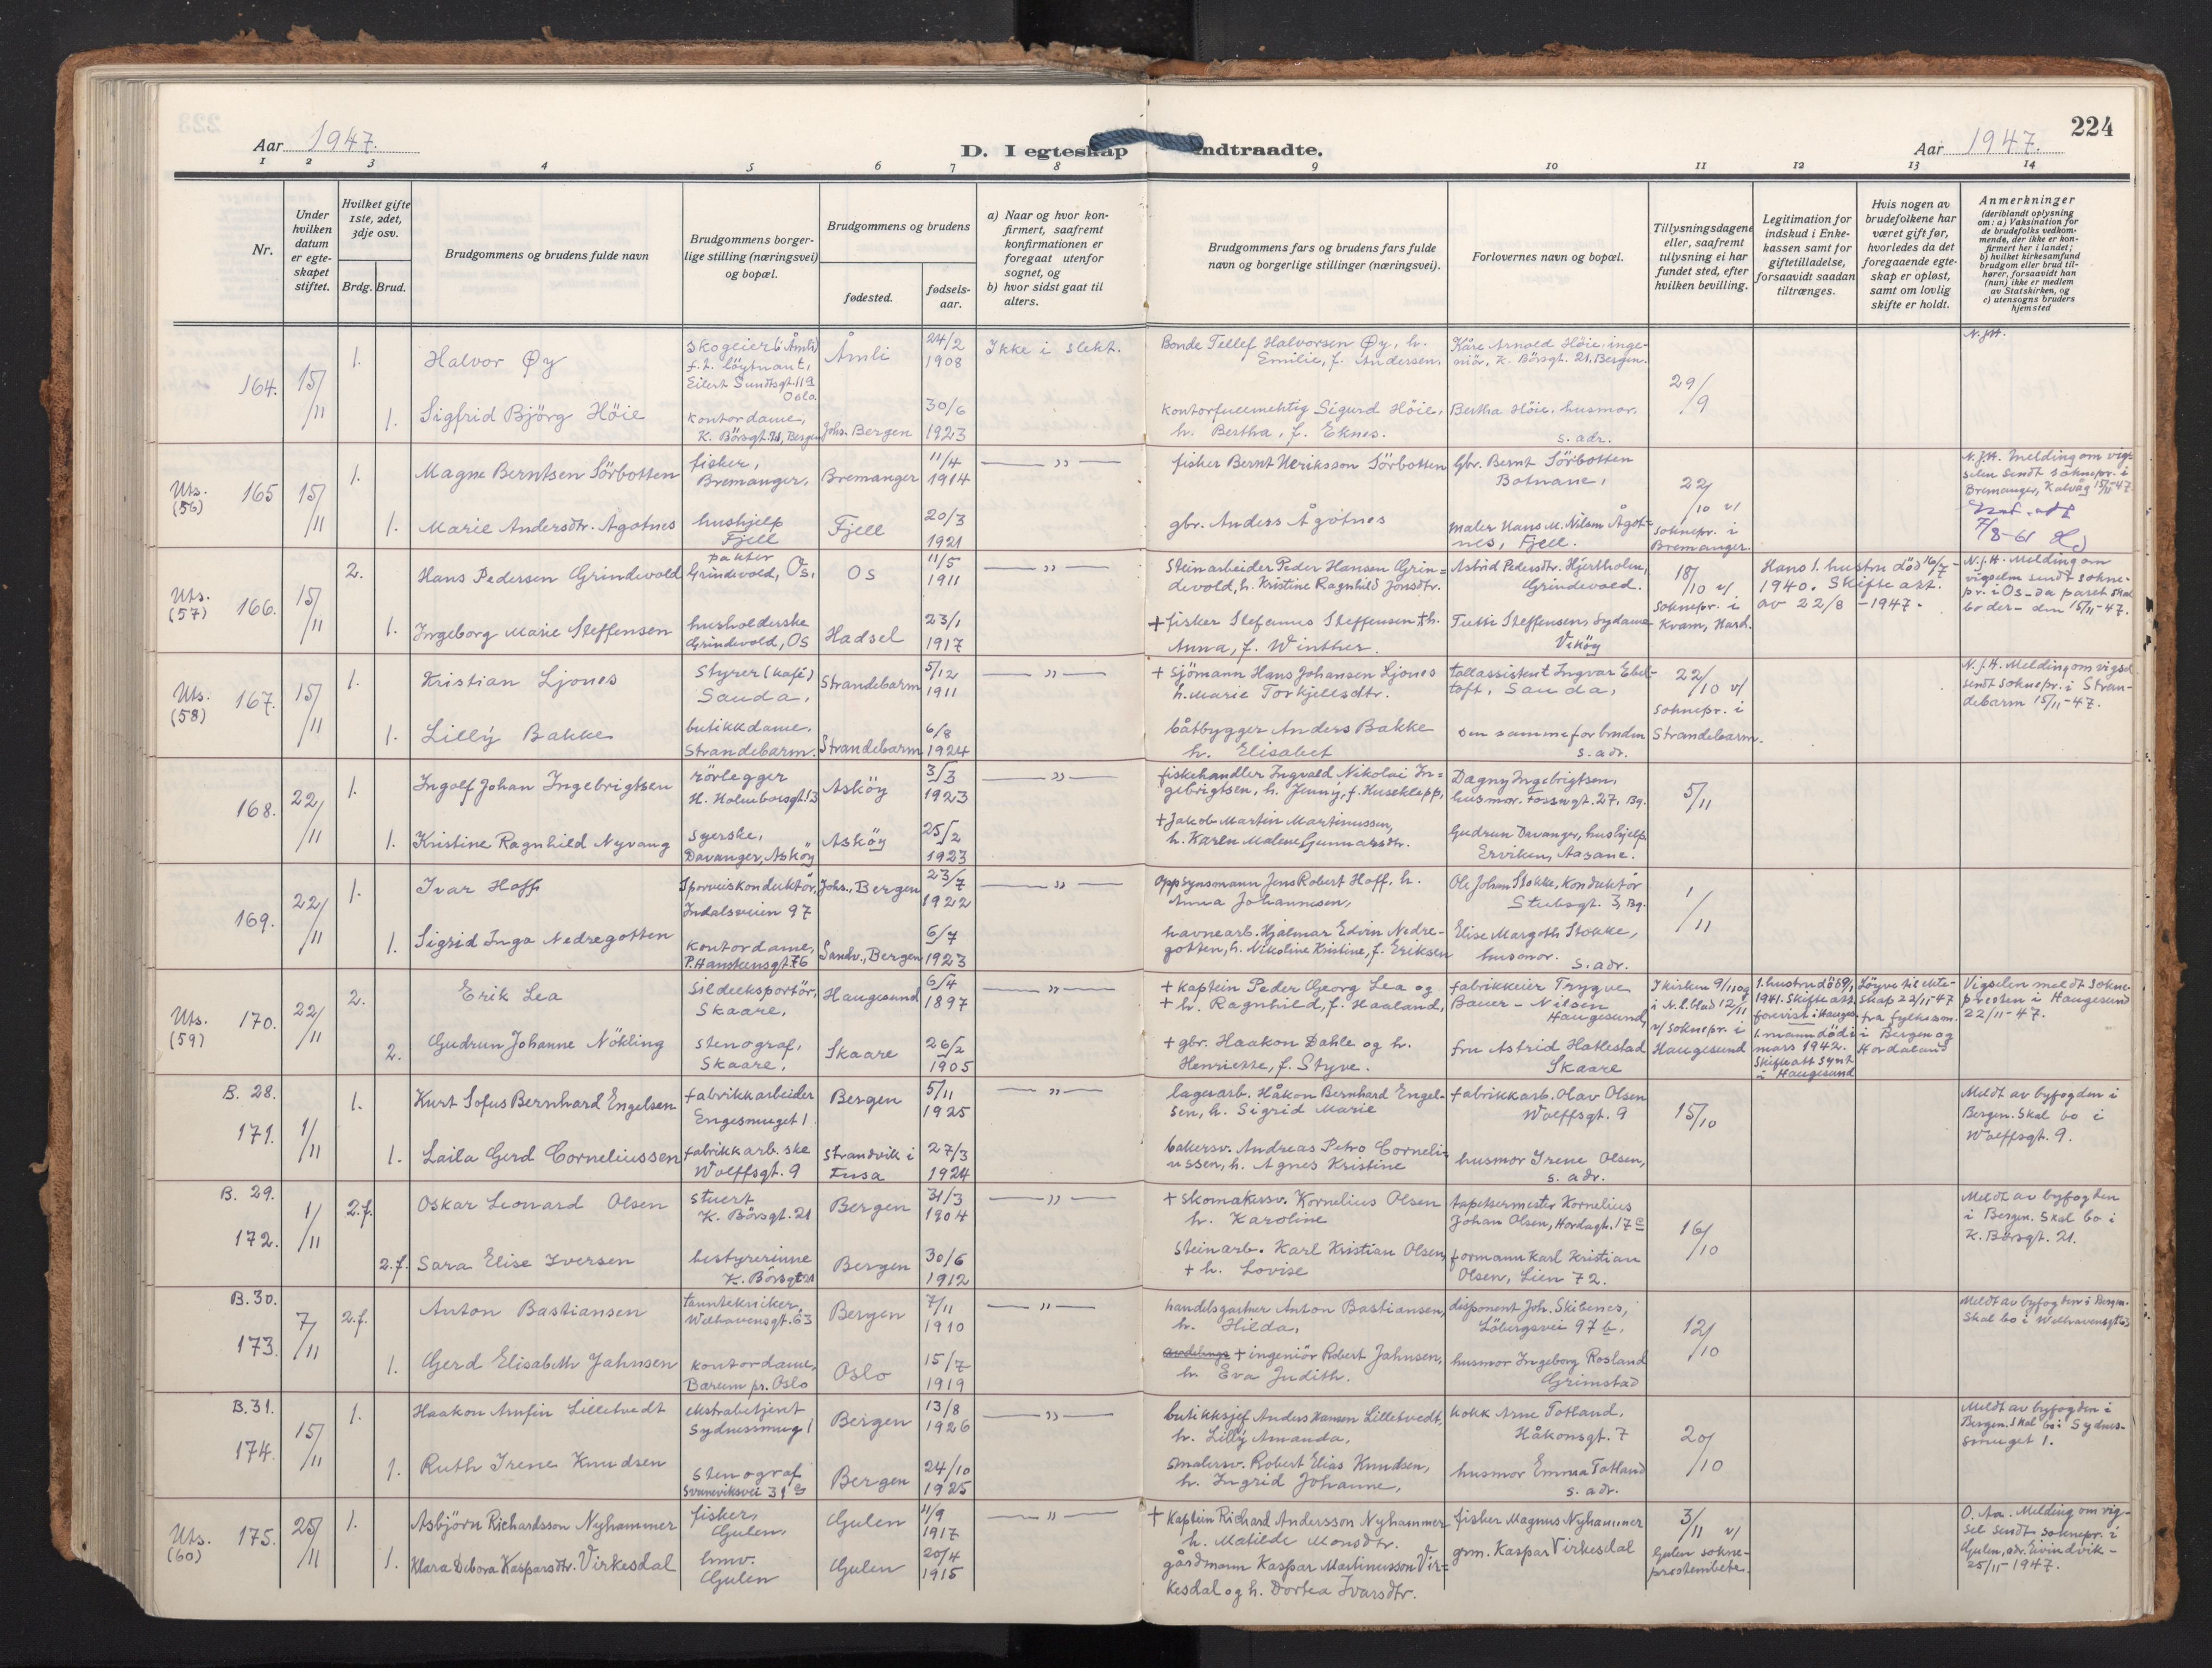 224
Aar 1947.
D. I egteskap indtraadte.
Aar 1947.
1 2 3 4 5 6 7 8 9 10 11 12 13 14
Nr.
Under hvilken datum er egteskapet stiftet.
Hvilket gifte 1ste, 2det, 3dje osv.
Brdg. Brud.
Brudgommens og brudens fulde navn
Brudgommens borgerlige stilling (næringsvei) og bopæl.
Brudgommens og brudens
fødested.
fødselsaar.
a) Naar og hvor konfirmert, saafremt konfirmationen er foregaat utenfor sognet, og
b) hvor sidst gaat til alters.
Brudgommens fars og brudens fars fulde navn og borgerlige stillinger (næringsvei).
Forlovernes navn og bopæl.
Tillysningsdagene eller, saafremt tillysning ei har fundet sted, efter hvilken bevilling.
Legitimation for indskud i Enkekassen samt for giftetilladelse, forsaavidt saadan tiltrænges.
Hvis nogen av brudefolkene har været gift før, hvorledes da det foregaaende egteskap er opløst, samt om lovlig skifte er holdt.
Anmerkninger
(deriblandt oplysning om: a) Vaksination for de brudefolks vedkommende, der ikke er konfirmert her i landet; b) hvilket kirkesamfund brudgom eller brud tilhører, forsaavidt han (hun) ikke er medlem av Statskirken, og c) utensogns bruders hjemsted
164. 15/11 1. Halvor Øy
skogeier (i Åmli) f.t. löytnant, Eilert Sundtsgt. 11 Oslo.
Åmli 24/2 1908 Ikke i slekt.
Bonde Tellef Halvorsen Øy, h. Emilie, f. Andersen.
Kåre Arnold Höie, ingeniör, K. Börsgt. 21. Bergen.
29/9
N.J.H.
1. Sigfrid Björg Höie
kontordame, K. Börsgt. 21, Bergen
Johs. Bergen 30/6 1923
kontorfullmektig Sigurd Höie, h. Bertha, f. Eknes.
Bertha Höie, husmor. s. adr.
Uts. (56) 165 15/11 1. Magne Berntsen Sörbotten
fisker, Bremanger.
Bremanger 11/4 1914 — " —
fisker Bernt Heriksson Sörbotten
Gbr. Bernt Sörbotten Botnane,
22/10 v/ soknepr. i Bremanger.
N.J.H. Melding om vigselen sendt soknepr. i Bremanger, Kalvåg 15/11-47.
7/8-61
1. Marie Andersdtr. Ågotnes
hushjelp Fjell
Fjell 20/3 1921
gbr. Anders Ågotnes
maler Hans M. Nilsen Ågotnes, Fjell.
Uts. (57) 166. 15/11 2. Hans Pedersen Grindevold
pakter Grindevold, Os.
Os 11/5 1911 — " —
Steinarbeider Peder Hansen Grindevold, h. Kristine Ragnhild Jonsdtr.
Astrid Pedersdtr. Hjertholm, Grindevold.
18/10 v/ soknepr. i Kvam, Hard.
Hans 1. hustru död 16/7-1940. Skifteatt. av 22/8-1947.
N.J.H. Melding om vigselen sendt sokne-pr. i Os - da paret skal bo der - den 15/11-47.
1. Ingeborg Marie Steffensen
husholderske Grindevold, Os
Hadsel 23/1 1917
+ fisker Stefanus Steffensen + h. Anna, f. Winther.
Tutti Steffensen, sydame Vikøy
Uts. (58) 167. 15/11 1. Kristian Ljones
Styrer (kafé) Sauda,
Strandebarm 5/12 1911 — " —
+ sjömann Hans Johansen Ljones h. Marie Torkjellsdtr.
tollassistent Ingvar Ebeltoft, Sauda,
22/10 v/ soknepr. i Strandebarm.
N.J.H. Melding om vigsel sendt soknepr. i Strandebarm 15/11-47.
1. Lilly Bakke
butikkdame, Strandebarm.
Strandebarm 6/8 1924
båtbygger Anders Bakke h. Elisabet
den samme for bruden s. adr.
168. 22/11 1. Ingolf Johan Ingebrigtsen
rörlegger H. Holmboesgt. 13
Asköy 3/3 1923 — " —
fiskehandler Ingvald Nikolai Ingebrigtsen, h. Jenny, f. Kuseklepp,
Dagny Ingebrigtsen, husmor. Fossngt. 27, Bg.
5/11
1. Kristine Ragnhild Nyvang
syerske, Davanger, Asköy
Asköy 25/2 1923
+ Jakob Martin Martinussen, h. Karen Malene Gunnarsdtr.
Gudrun Davanger, hushjelp Erviken, Aasane.
169. 22/11 1. Ivar Hoff
Sporveiskonduktör, Indalsveien 97
Johs., Bergen 23/7 1922 — " —
oppsynsmann Jens Robert Hoff, h. Anna Johannesen,
Ole Johan Stokke, konduktör Stubsgt. 3, Bg.
1/11
1. Sigrid Inga Nedregotten
kontordame, P. Hansteensgt. 76
Sandv., Bergen 6/7 1923
havnearb. Hjalmar Edvin Nedregotten, h. Nikoline Kristine, f. Eriksen
Elise Margoth Stokke, husmor. s. adr.
Uts. (59) 170. 22/11 2. Erik Lea
sildeeksportör, Skaare.
Haugesund 6/4 1897 — " —
+ kaptein Peder Georg Lea og + h. Ragnhild, f. Haaland,
fabrikkeier Trygve Bauer-Nilsen Haugesund,
I kirken 9/11 og i N.l.blad 12/11 v/ soknepr. i Haugesund
1. hustru död 9/1 1941. Skifteatt. forevist i Hauges. 1. mann död i mars 1942. Skifteatt synt i Haugesund
Löyve til ekteskap 22/11-47 fra fylkesm. i Bergen og Hordaland
Vigselen meldt sokneprosten i Haugesund 22/11-47.
2. Gudrun Johanne Nökling
stenograf, Skaare.
Skaare 26/2 1905
+ gbr. Haakon Dahle og h. Henriette, f. Styve.
fru Astrid Hatlestad Skaare
B. 28. 171. 1/11 1. Kurt Sofus Bernhard Engelsen
fabrikkarbeider Engesmuget 1
Bergen 5/11 1925 — " —
lagerarb. Håkon Bernhard Engelsen, h. Sigrid Marie
fabrikkarb. Olav Olsen Wolffsgt. 9
15/10
Meldt av byfogden i Bergen. Skal bo i Wolffsgt. 9.
1. Laila Gerd Corneliussen
fabrikkarb.ske Wolffsgt. 9
Strandvik i Fusa 27/3 1924
bakersv. Andreas Petro Corneliussen, h. Agnes Kristine
husmor Irene Olsen, s. adr.
B. 29. 172. 1/11 2.f. Oskar Leonard Olsen
stuert K. Börsgt. 21
Bergen 31/3 1904 — " —
+ skomakersv. Kornelius Olsen h. Karoline
tapetsermester Kornelius Johan Olsen, Hordagt. 17 c
16/10
Meldt av byfogden i Bergen. Skal bo i K. Börsgt. 21.
2.f. Sara Elise Iversen
bestyrerinne K. Börsgt 21
Bergen 30/6 1912
steinarb. Karl Kristian Olsen, + h. Lovise
formann Karl Kristian Olsen, Lien 72.
B. 30. 173. 7/11 2.f. Anton Bastiansen
tanntekniker, Welhavensgt. 63
Bergen 7/11 1910 — " —
handelsgartner Anton Bastiansen, h. Hilda,
disponent Joh. Skibenes, Löbergsvei 97 b.
12/10
Meldt av byfogden i Bergen. Skal bo i Welhavensgt 63
1. Gerd Elisabeth Jahnsen
kontordame, Bærum pr. Oslo
Oslo 15/7 1919
+ ingeniör Robert Jahnsen, h. Eva Judith.
husmor Ingeborg Rosland Grimstad
B. 31. 174. 15/11 1. Haakon Arnfin Lilletvedt
ekstrabetjent Sydnessmug 1
Bergen 13/8 1926 — " —
butikksjef Anders Hansen Lilletvedt, h. Lilly Amanda,
kokk Arne Totland, Håkonsgt. 7
20/10
Meldt av byfogden i Bergen. Skal bo i Sydnessmuget 1.
1. Ruth Irene Knudsen
stenograf Svaneviksvei 31
Bergen 24/10 1925
malersv. Robert Elias Knudsen, h. Ingrid Johanne,
husmor Emma Totland s. adr.
Uts. (60) 175. 25/11 1. Asbjörn Richardsson Nyhammer
fisker, Gulen.
Gulen 11/9 1917 — " —
+ kaptein Richard Andersson Nyhammer h. Matilde Monsdtr.
fisker Magnus Nyhammer
3/11 v/ Gulen sokneprestembete.
O. Aa. Melding om vigsel sendt soknepr. i Gulen, adr. Eivindvik - 25/11-1947.
1. Klara Debora Kasparsdtr. Virkesdal
hmv. Gulen
Gulen 20/4 1915
gårdmann Kaspar Martinusson Virkesdal og h. Dortea Ivarsdtr.
grm. Kaspar Virkesdal